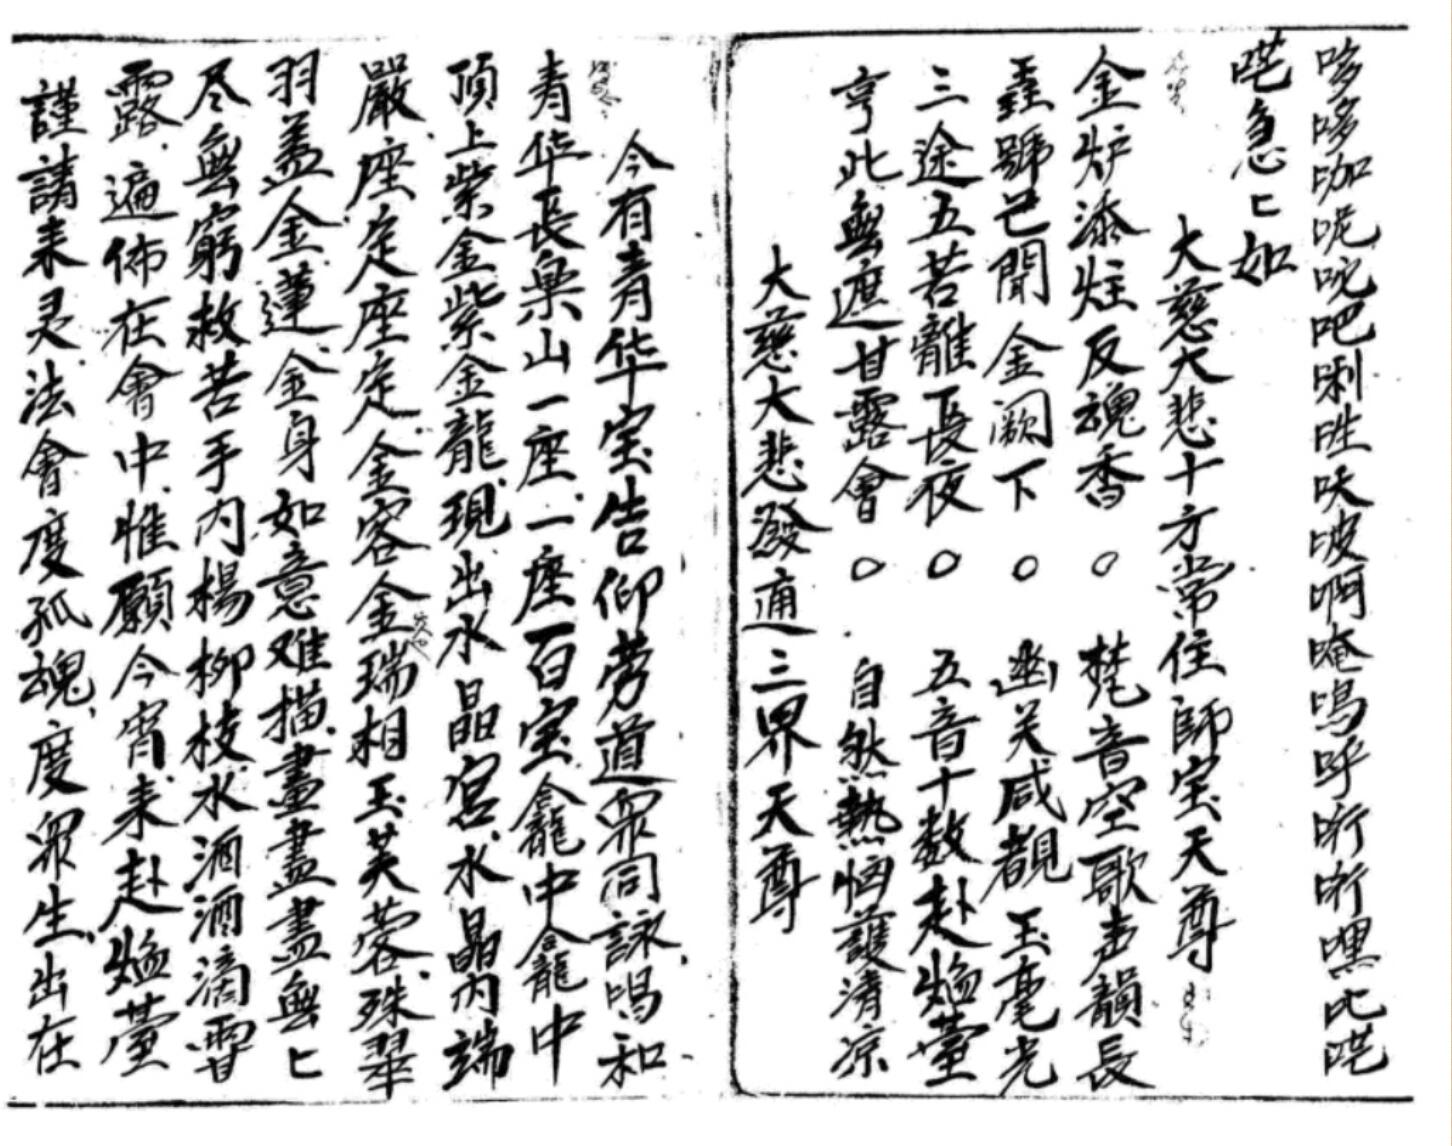 哆哆咖呢吮吧唎
吒急匕如
大慈大悲十方常住師宝天尊
金炉添炷反魂香○梵音空歌声韻長
號已聞金闕下○幽关咸覩玉毫光
三途五苦離長夜○五音十数赴焰臺
亨此無遮甘露會○自然熱惱護清凉
大慈大悲發通三界天尊
今有青华宝告仰劳道眾同詠唱和
青华長樂山一座一座百宝龕中龕中
頂上紫金紫金龍現出水晶宫水晶内端
嚴座定座定金容金瑞相玉芙蓉殊翠
羽盖金蓮金身如意难描畫盡盡無匕
尽無窮救苦手内楊柳枝水洒洒滴
露遍佈在會中惟願今宵来赴焰臺
謹請来灵法會度孤魂度眾生出在